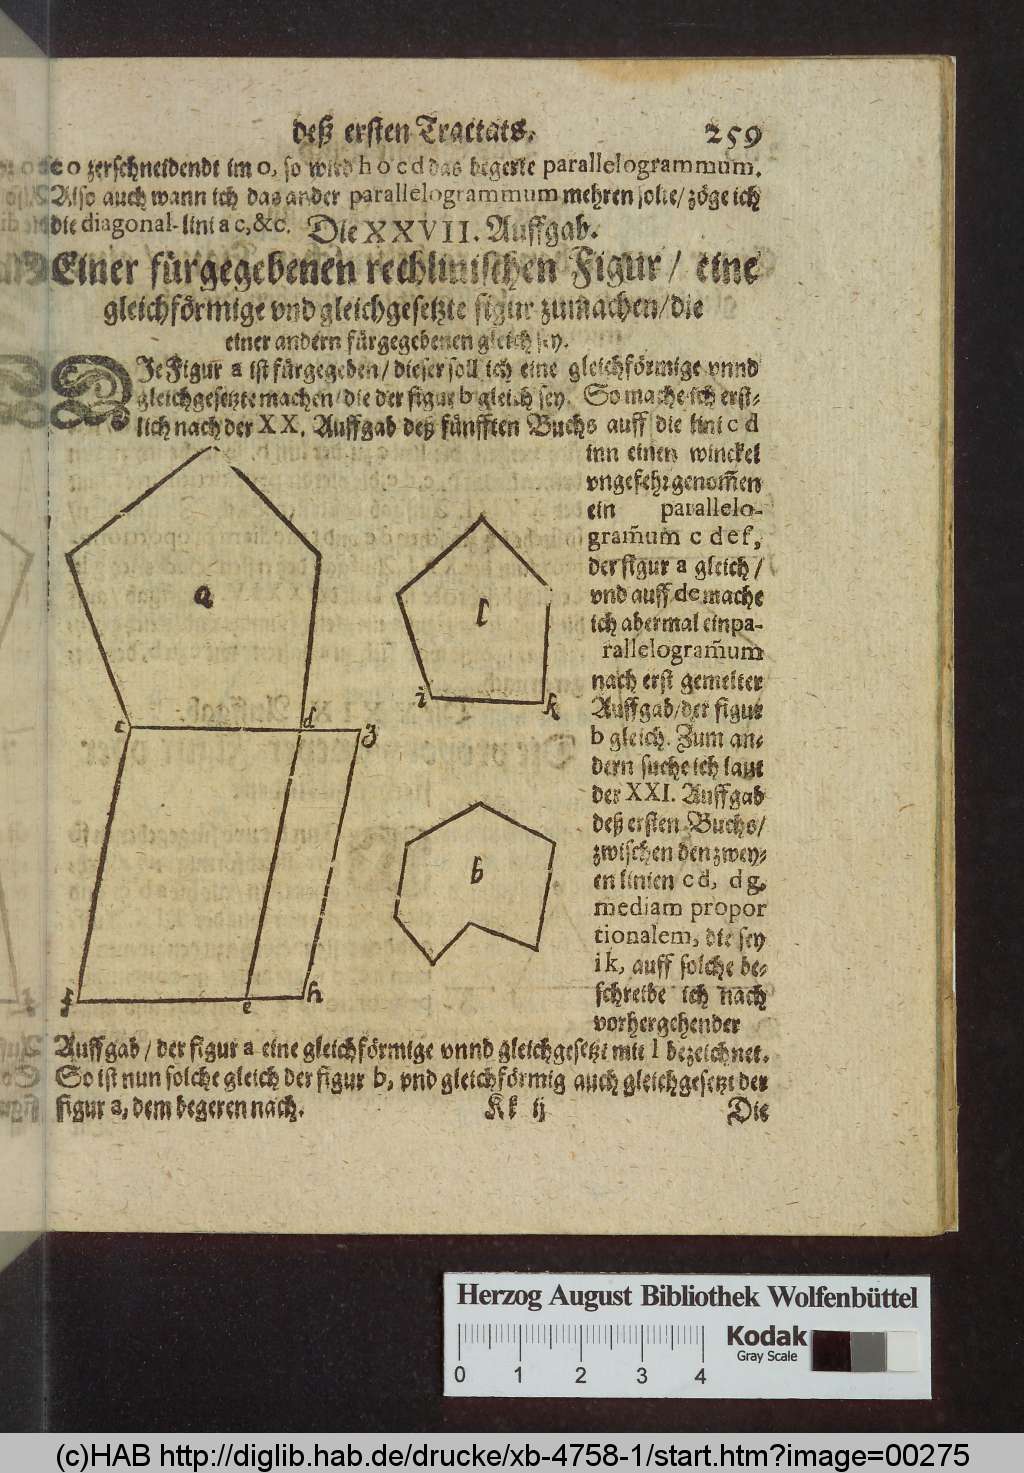 deß ersten Tractats. 259
c o zerschneidendt im o, so wird h o c d das begerte parallelogrammum.
Also auch wann ich das ander parallelogrammum mehren solte/ zöge ich
die diagonal-lini a c, &c. Die XXVII. Auffgab.
Einer fürgegebenen rechlinischen Figur / eine
gleichförmige vnd gleichgesetzte figur zumachen/die
einer andern fürgegebenen gleich sey.
DJe Figur a ist fürgegeben/ dieser soll ich eine gleichförmige vnnd
gleichgesetzte machen/ die der figur b gleich sey. So mache ich erst-
lich nach der XX. Auffgab deß fünfften Buchs auff die lini c d
inn einen winckel
vngefehr genom̃en
ein parallelo-
gram̃um c d e f,
der figur a gleich /
vnd auff de mache
ich abermal ein pa-
rallelogram̃um
nach erst gemelter
Auffgab/der figur
b gleich. Zum an-
dern suche ich laut
der XXI. Auffgab
deß ersten Buchs/
zwischen den zwey-
en linien c d, d g,
mediam propor
tionalem, die sey
i k, auff solche be-
schreibe ich nach
vorhergehender
a
l
i
k
c
d
g
b
f
e
h
Auffgab / der figur a eine gleichförmige vnnd gleichgesetzt mit l bezeichnet.
So ist nun solche gleich der figur b, vnd gleichförmig auch gleichgesetzt der
figur a, dem begeren nach. Kk ij Die
Herzog August Bibliothek Wolfenbüttel
0 1 2 3 4
Kodak
Gray Scale
(c)HAB http://diglib.hab.de/drucke/xb-4758-1/start.htm?image=00275